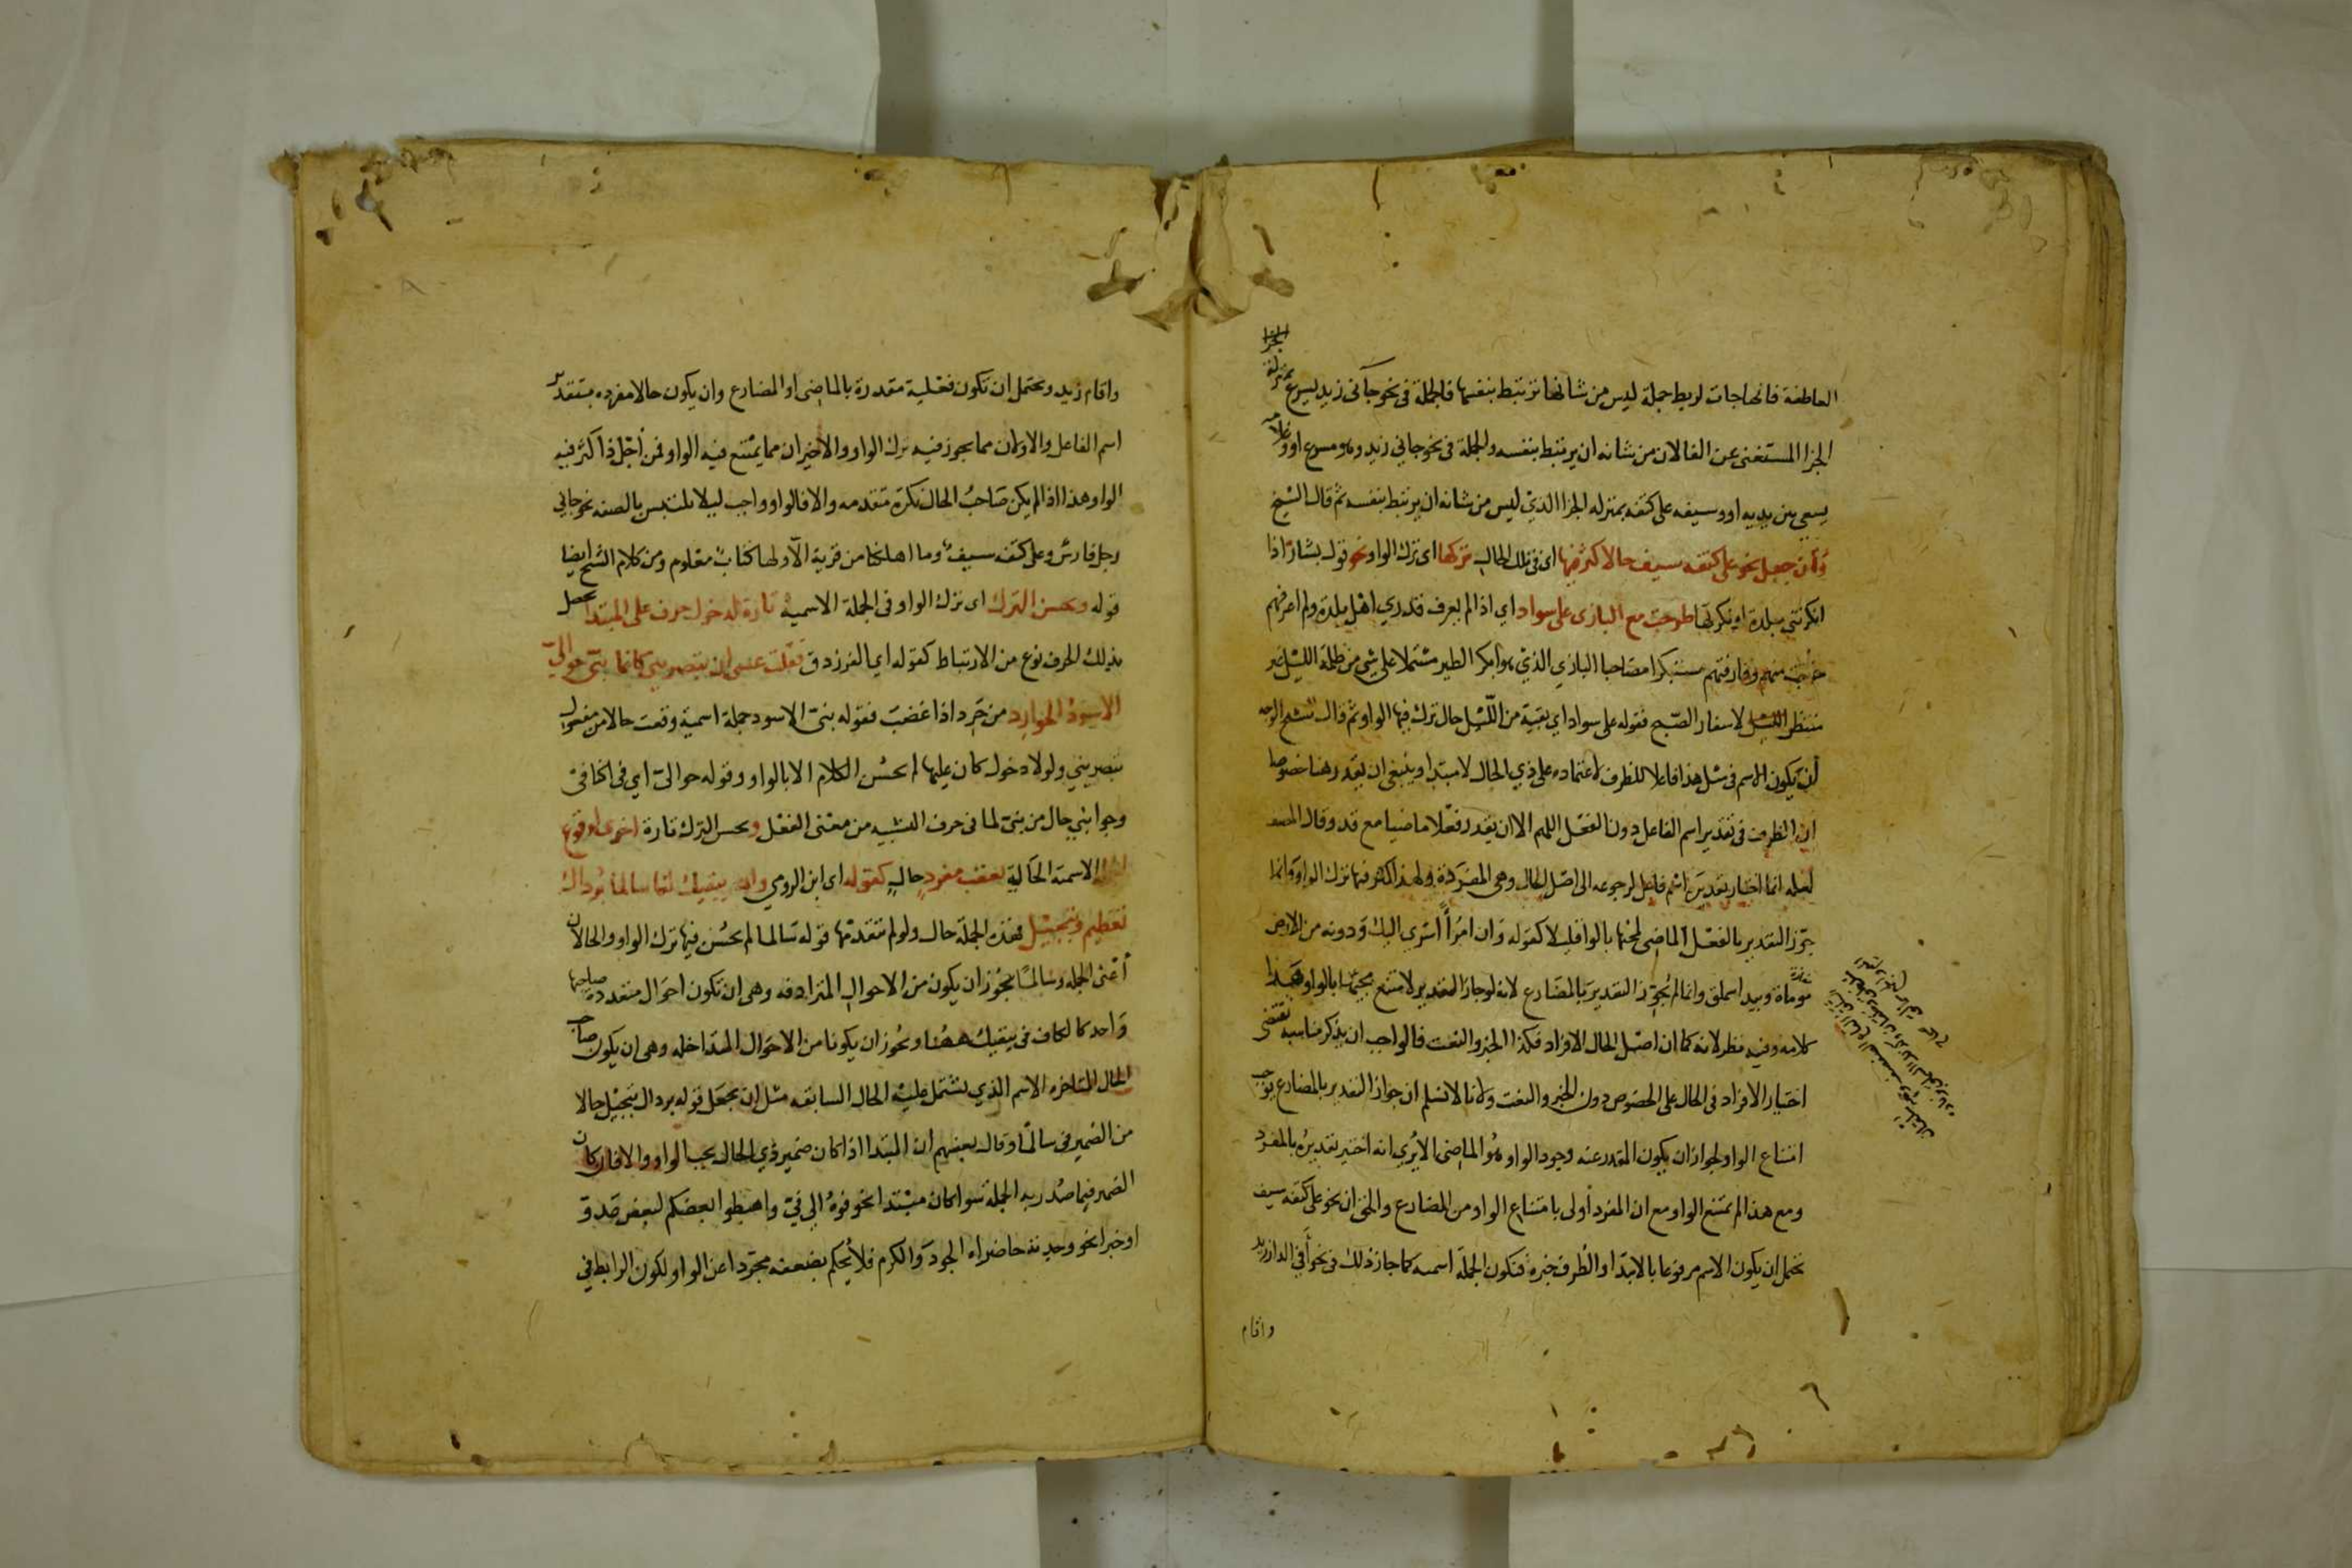 العاطفة فانها جات لربط جملة ليس من شانها ترتبط بنفسها فالجملة في نحو جآنى زيد يسرع بمنزلة الجزا
الجزا المستغنى عن الفا لان من شانه ان يرتبط بنفسه والجملة في نحو جاني زيد وهو مسرع او وغلامه
يسعى بين يديه او وسيفه على كتفه بمنزله الجزا الذي ليس من شانه ان يرتبط بنفسه ثم قال الشيخ
وان جعل نحو على كتفه سيف حالا كثر فيها اى في تلك الحال تركها اى ترك الواو نحو قول بشار اذا
انكرتني بلدة او نكرتها خرجت مع البازى على سواد اي اذا لم يعرف قدري اهل بلدة ولم اعرفهم
خرجت منهم وفارقتهم مبتكرا مصاحبا البازي الذي هو ابكر الطير مشتملا على شي من ظلمة الليل غير
منتظر لاسفار الصبح فقوله على سواد اي بقية من الليل حال ترك فيها الواو ثم قال الشيخ الوجه
ان يكون الاسم في مثل هذا فاعلا للظرف لاعتماده على ذي الحال لا مبتدا وينبغي ان يقدر هنا خصوصا
ان الظرف في تقدير اسم الفاعل دون الفعل اللهم الا ان يقدر فعلا ماضيا مع قد وقال المصنف
لعله انما اختار تقديره باسم فاعل لرجوعه الى اصل الحال وهي المفردة ولهذا كثر فيها ترك الواو وانما
جوز التقدير بالفعل الماضي لمجيها بالواو قليلا كقوله وان امرأً اسرى اليك ودونه من الارض
موماة وبيداء سملق وانما لم يجوز التقدير بالمضارع لانه لو جاز التقدير لامتنع مجيئها بالواو وهذا
كلامه وفيه نظر لانه كما ان اصل الحال الافراد فكذا الخبر والنعت فالواجب ان يذكر مناسبة تقتضى
اختيار الافراد في الحال على الخصوص دون الخبر والنعت ولانا لا نسلم ان جواز التقدير بالمضارع يوجب
امتناع الواو لجواز ان يكون المقدر عند وجود الواو هو الماضى الا يُرى انه اختير تقديره بالمفرد
ومع هذا لم تمتنع الواو مع ان المفرد أولى بامتناع الواو من المضارع والحق ان نحو على كتفه سيف
يحتمل ان يكون الاسم مرفوعا بالابتدا والظرف خبره فتكون الجملة اسميه كما جاز ذلك في نحو أفي الدار زيد
واقام
واقام زيد ويحتمل ان تكون فعلية مقدرة بالماضى او المضارع وان يكون حالا مفرده بتقدير
اسم الفاعل والاولان مما يجوز فيه ترك الواو والاخيران مما يمتنع فيه الواو فمن أجل ذا كثر فيه
الواو هذا اذا لم يكن صاحب الحال نكرة متقدمه والا فالواو واجب ليلا يلتبس بالصفه نحو جاني
رجل فارس وعلى كتفه سيف وما اهلكنا من قرية الا ولها كتاب معلوم ومن كلام الشيخ ايضا
قوله ويحسن الترك اى ترك الواو في الجملة الاسمية تارة لدخول حرف على المبتدا يحصل
بذلك الحرف نوع من الارتباط كقوله اي الفرزدق فقلت عسى ان تبصريني كانما بنيّ حوالىّ
الاسود الحوارد من حَرِد اذا غضب فقوله بنىّ الاسود جملة اسمية وقعت حالا من مفعول
تبصريني ولولا دخول كان عليها لم يحسن الكلام الا بالواو وقوله حوالىّ اي في اكنافى
وجوانبي حال من بنىّ لما في حرف التشبيه من معنى الفعل ويحسن الترك تارة اخرى لوقوع
الاسمية الحالية بعقب مفرد حال كقوله اى ابن الرومي والله يبقيك لنا سالما برداك
تعظيم وتبجيل فهذه الجملة حال ولو لم تتقدمها قوله سالما لم يحسن فيها ترك الواو والحالان
أعنى الجمله وسالما يجوز ان يكون من الاحوال المترادفه وهى ان تكون احوال متعدده صاحبها
واحد كالكاف في يبقيك ههنا ويجوز ان يكونا من الاحوال المتداخله وهى ان يكون صاحب
الحال المتاخره الاسم الذي تشتمل عليه الحال السابقه مثل ان تجعل قوله برداك تبجيل حالا
من الضمير في سالما وقال بعضهم ان المبتدا اذا كان ضمير ذي الحال يجب الواو والا فان كان
الضمير فيما صُدر به الجملة سوا كان مبتدا نحو فوهُ الى فيّ واهبطوا بعضكم لبعض عدو
او خبرا نحو وجدته حاضراه الجود والكرم فلا يُحكم بضعفه مجردا عن الواو لكون الرابط في